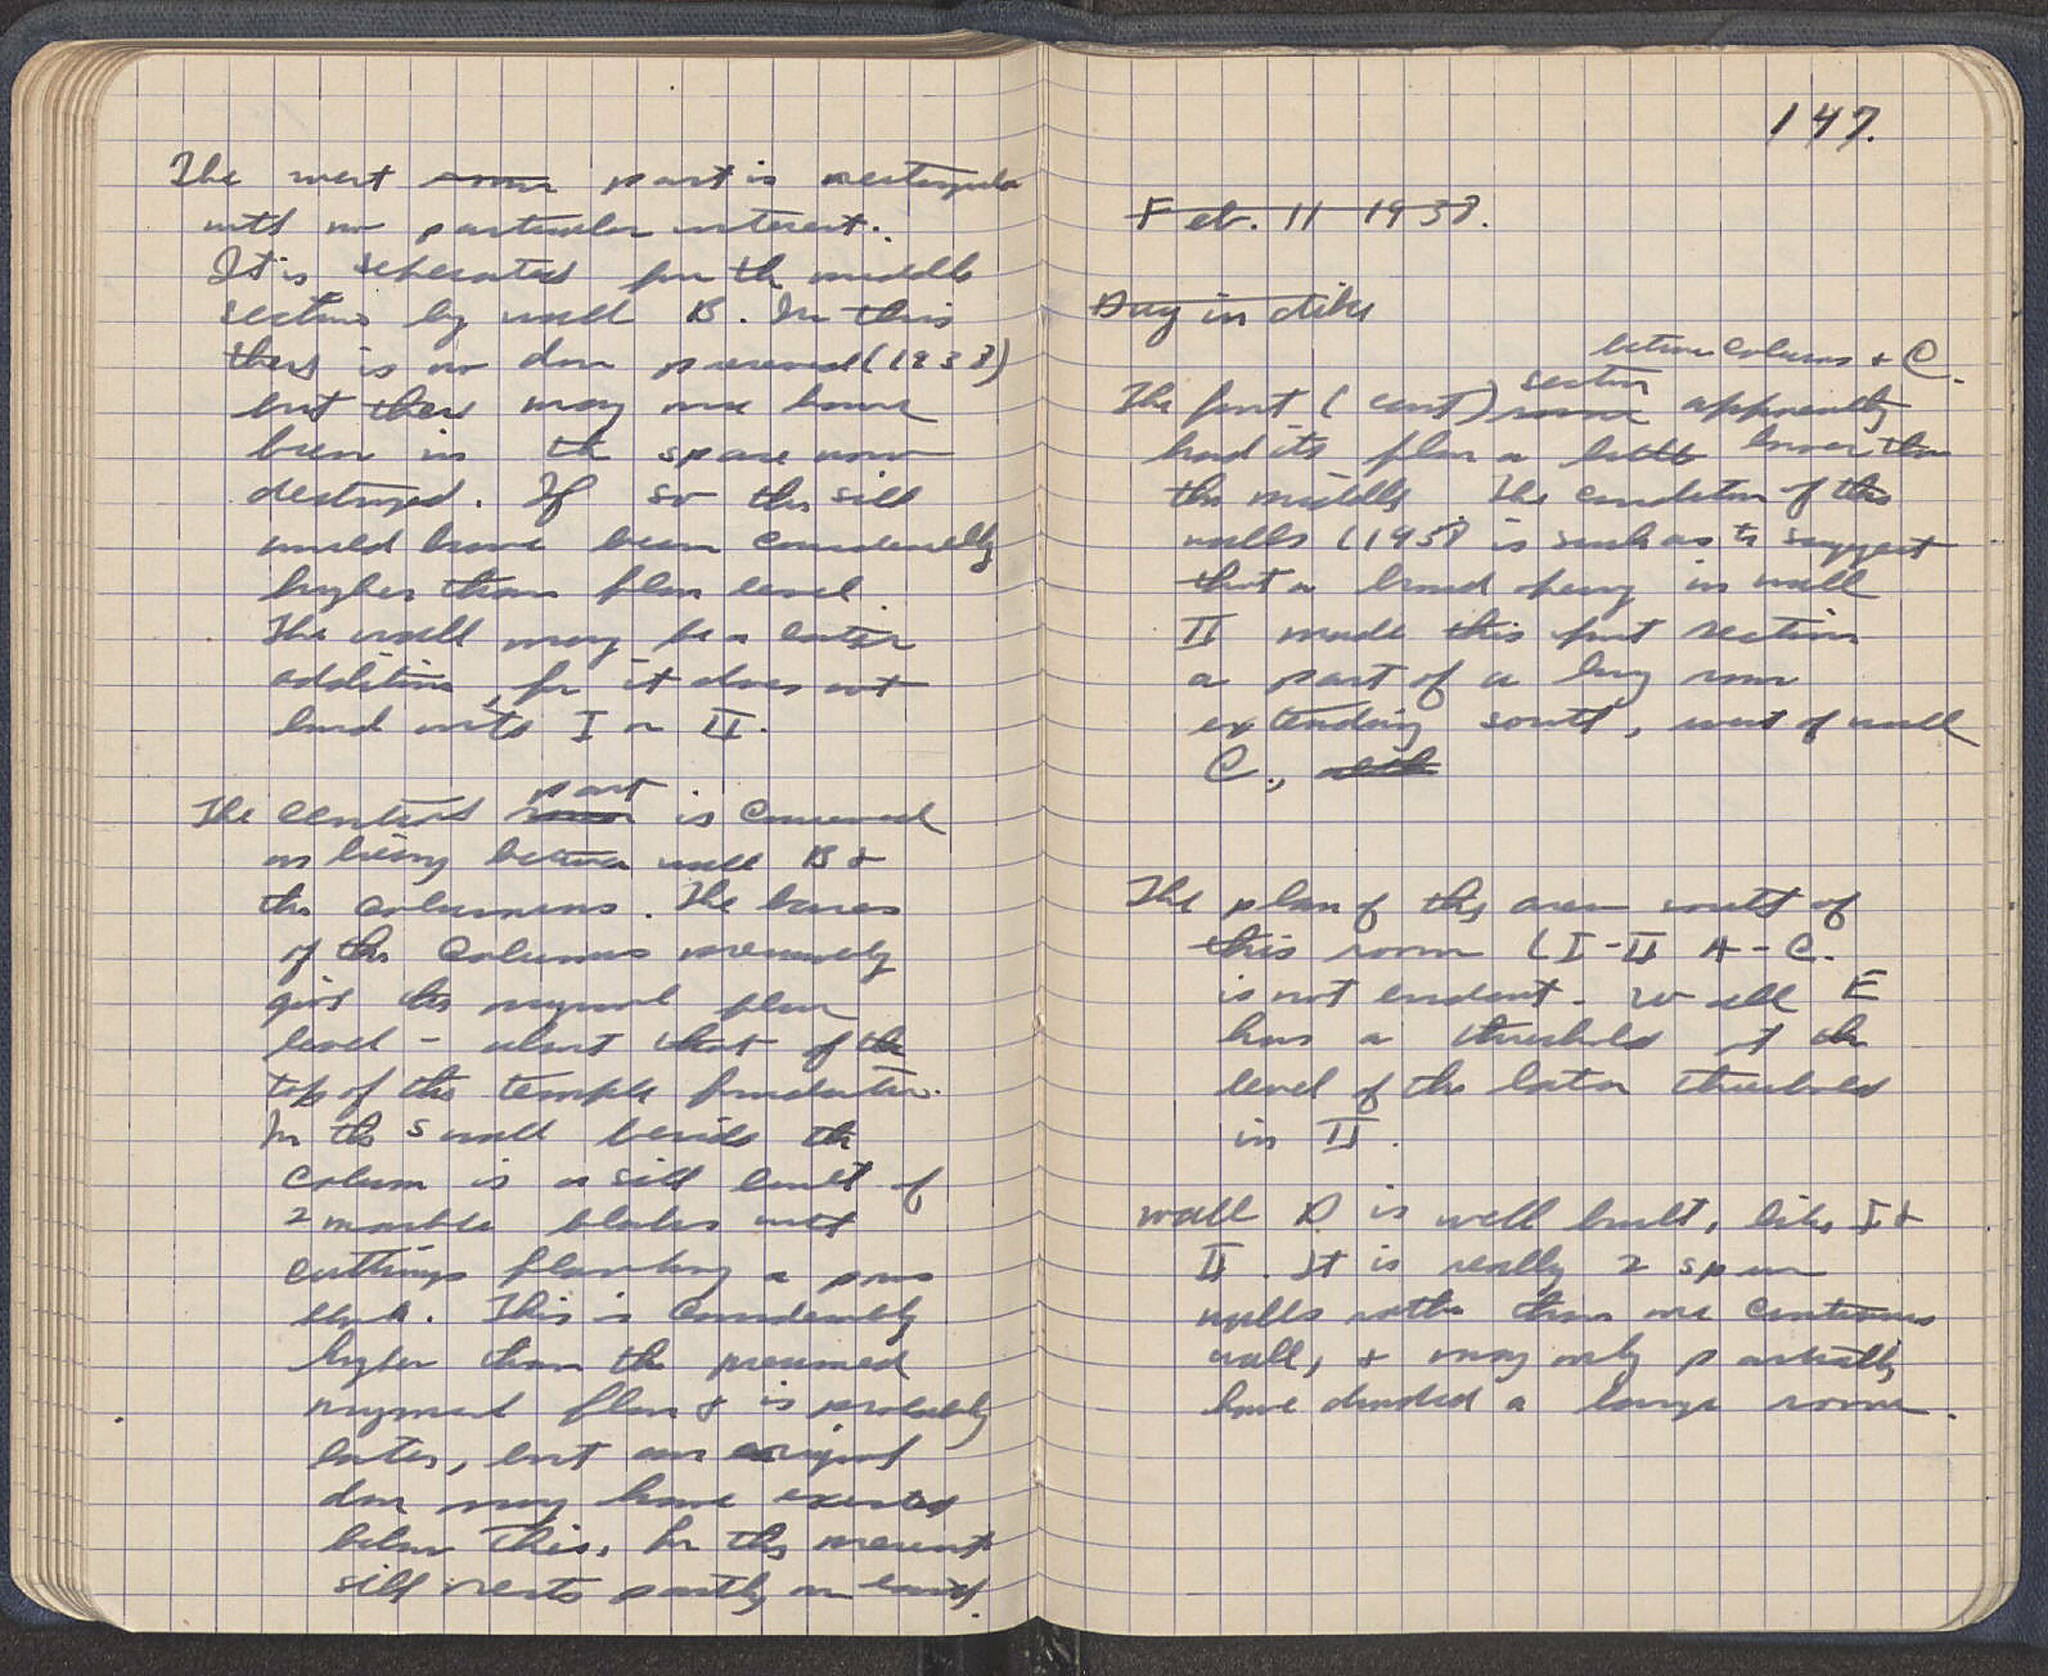 The west room part is rectangular
with no particular interest.
It is seperated from the middle
section by wall B. In this
there is no door preserved (1938)
but there may once have
been in the space now
destroyed. If so the sill
would have been considerably
higher than floor level.
The wall may be a later
addition, for it does not
bond with I or II.
The central room part is conceived
as lying between wall B &
the columns. The bases
of the columns presumably
give the original floor
level - about that of the
top of the temple foundation.
In the S wall beside the
column is a sill built of
2 marble blocks with
cuttings flanking a poros
block. This is considerably
higher than the presumed
original floor & is probably
later, but an original
door may have existed
below this, for the present
sill rests partly on earth.
147.
Feb. 11 1938.
Dug in dike
between columns & C.
The front (east) room section apparently
had its floor a little lower than
the middle. The condition of the
walls (1938 is such as to suggest
that a broad opening in wall
II made this front section
a part of a long room
extending south, west of wall
C.,
The plan of the area south of
this room (I-II A-C.
is not evident. Wall E
has a threshold at the
level of the later threshold
in II.
Wall D is well built, like I &
II. It is really 2 spur
walls rather than one continuous
wall, & may only partially
have divided a large room.